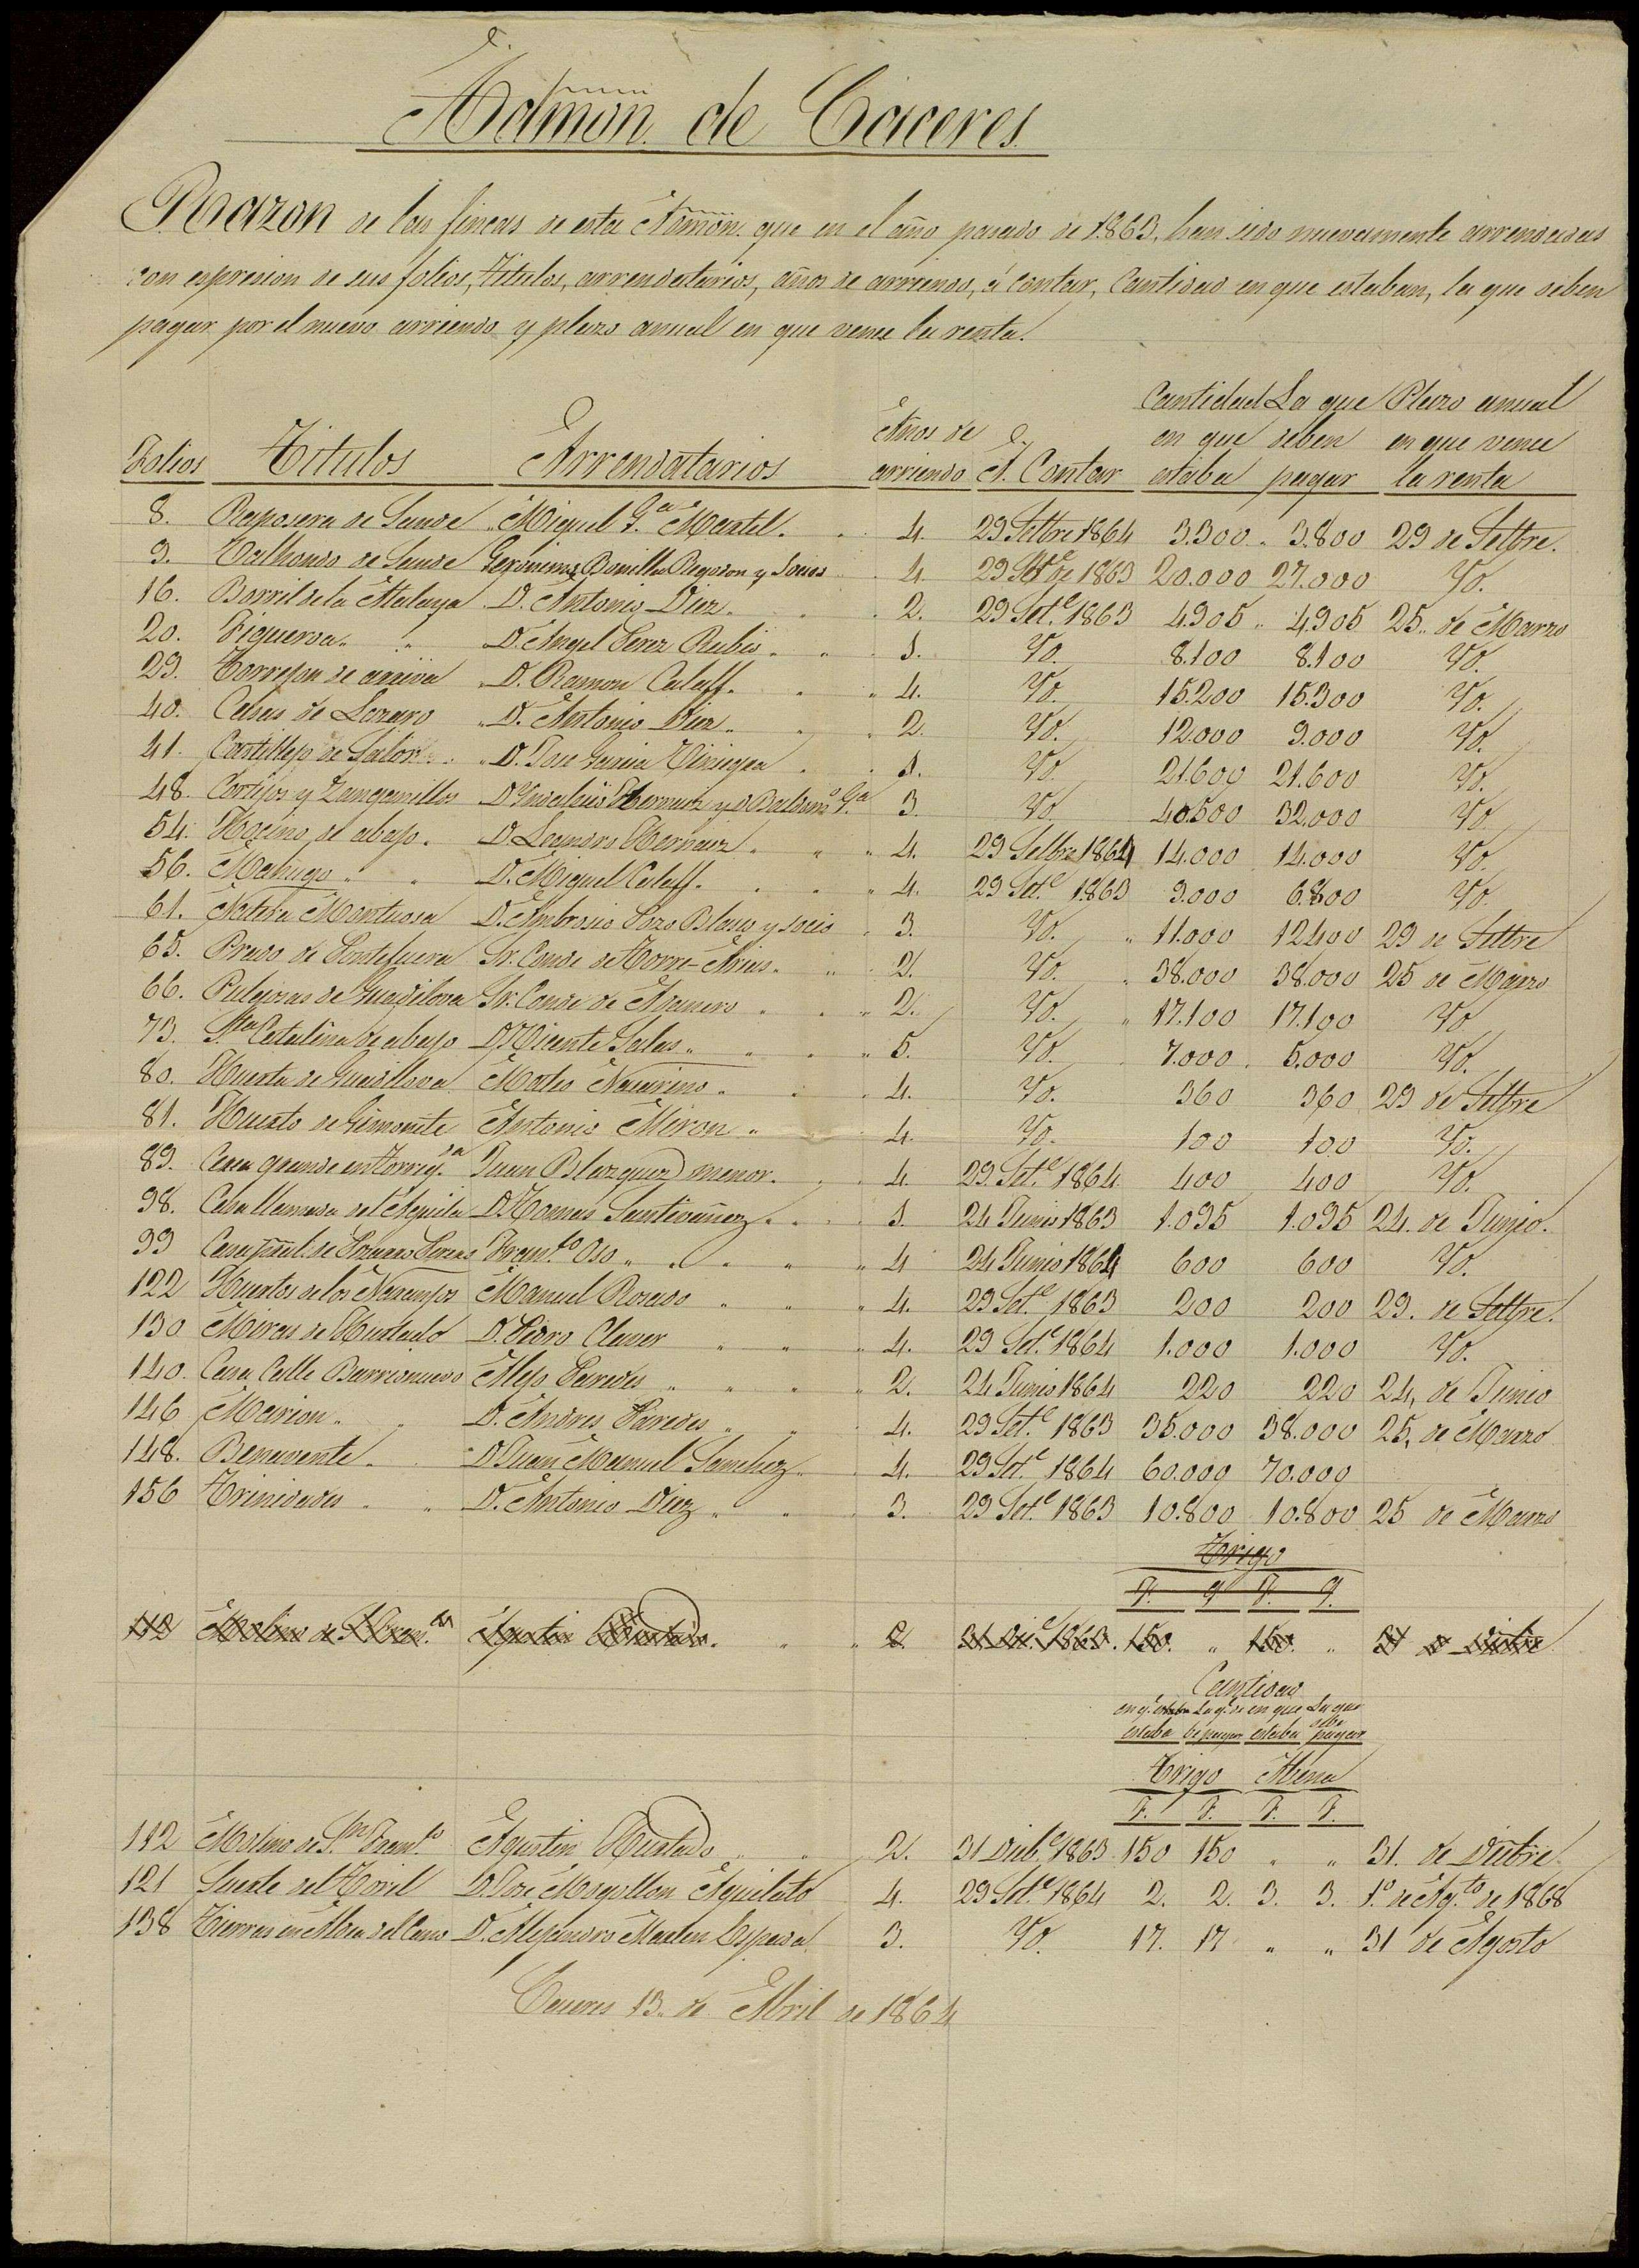 Admon. de Cáceres.
Razon de las fincas de esta Admon. que en el año pasado de 1.863, han sido nuevamente arrendadas
con espresion de sus folios, títulos, arrendatarios, años de arriendo, á contar, Cantidad en que estaban, la que deben
pagar por el nuevo arriendo y plazo anual en que vence la renta.
Cantidad La que Plazo anual
Años de en que deben en que vence
Folios Titulos Arrendatarios arriendo A. Contar estaba pagar la renta
8. Raposera de Sande " Miguel G.a Martel. 4. 29 Setbre 1864 3.300 " 3.800 29 de Setbre.
9. Valhondo de Sande Gerónimo Bonilla Regodon y Socios 4. 29 Set.e de 1863 20.000 27.000 Yd.
16. Borril de la Atalaya D. Antonio Diez. 2. 29 Set.e 1863 4.905 " 4.905 25 " de Marzo
20. Figueroa " " D. Angel Perez Rubio " " 1. Yd. 8.100 8.100 Yd.
29. Torrejon de arriva " D. Ramon Calaff. " " 4. Yd. 15.200 15.300 Yd.
40. Casas de Lazaro " D. Antonio Diez " " 2. Yd. 12.000 9.000 Yd.
41. Castillejo de Salor " " D. Jose Garcia 1. Yd. 21.600 21.600 Yd.
48. Cortijos y Zanganillos D. Indalecio Hernaiz y D. G.a 3. Yd. 40.500 32.000 Yd.
54. Hocino de abajo. D. Leandro Hernaiz " " " 4. 29 Setbre 1864 14.000 14.000 Yd.
56. Mahugo " " D. Miguel Calaff. " " " 4. 29 Set.e 1863 9.000 6.800 Yd.
61. Natera Montuosa D. Ambrosio Pozo Blasco y socio " 3. Yd. " 11.000 12.400 29 de Setbre
65. Prado de Sr. Conde de Torre-Arias " " 2. Yd. " 38.000 38.000 25 de Marzo
66. Pulgosas de Guadiloba Sr. Conde de Adanero " " " 2. Yd. " 17.100 17.100 Yd
73. S.ta Catalina de abajo D. Vicente Salas " " " " 5. Yd. 7.000 . 5.000 Yd.
80. Huerta de Guadilova Mateo Nacarino " " " 4. Yd. 360 360 29 de Setbre
81. Huerto de Gimonte Antonio Miron " " 4. Yd. 100 100 Yd.
89. Casa grande en Torreq.da Juan Blazquez menor. " " 4. 29 Set.e 1864 400 400 Yd.
98. Casa llamada del Aguila D. Tomas Santivañez " " " 1. 24 Junio 1863 1.095 1.095 24. de Junio.
99 Casa Franc.co Oso " " " " " 4 24 Junio 1864 600 600 Yd.
122 Huertos de los Naranjos Manuel Rosado " " " 4. 29 Set.e 1863 200 200 29. de Setbre.
130 Miras de Hurtado D. Pedro Claver " " " 4. 29 Set.e 1864 1.000 1.000 Yd.
140. Casa Calle Barrionuevo Alejo Paredes " " " " 2. 24 Junio 1864 220 220 24, de Junio
146 Marion " " D. Andres Paredes " " 4. 29 Set.e 1863 35.000 38.000 25, de Marzo
148. Benavente " D. Juan Manuel Sanchez " " 4. 29 Set.e 1864 60.000 70.000
156 Trinidades " " D. Antonio Diez " " " 3. 29 Set.e 1863 10.800 10.800 25 de Marzo
Trigo
F. q F. q.
112 Molino de S. Fran.co Agustin Hurtado " " " 2. 31 Di.e 1863. 150. " 150. " 31 de Dicbre
Cantidad
en q.e estaba La q.e de en que La que
estaba be pagar estaba debe pagar
Trigo Abena
F. F. F. F.
112 Molino de S.n Fran.co Agustin Hurtado " " 2. 31 Dicb.e 1863 150 150 " " 31. de Dicbre.
121 Suerte del Toril D. Jose Mogollon Aguilato 4. 29 Set.e 1864 2. 2. 3. 3. 1.o de Ag.to de 1868
138 Tierras en Aldea del Cano D. Alejandro Martin Espada 3. Yd. 17. 17 " " 31 de Agosto
Caceres 13. de Abril de 1864